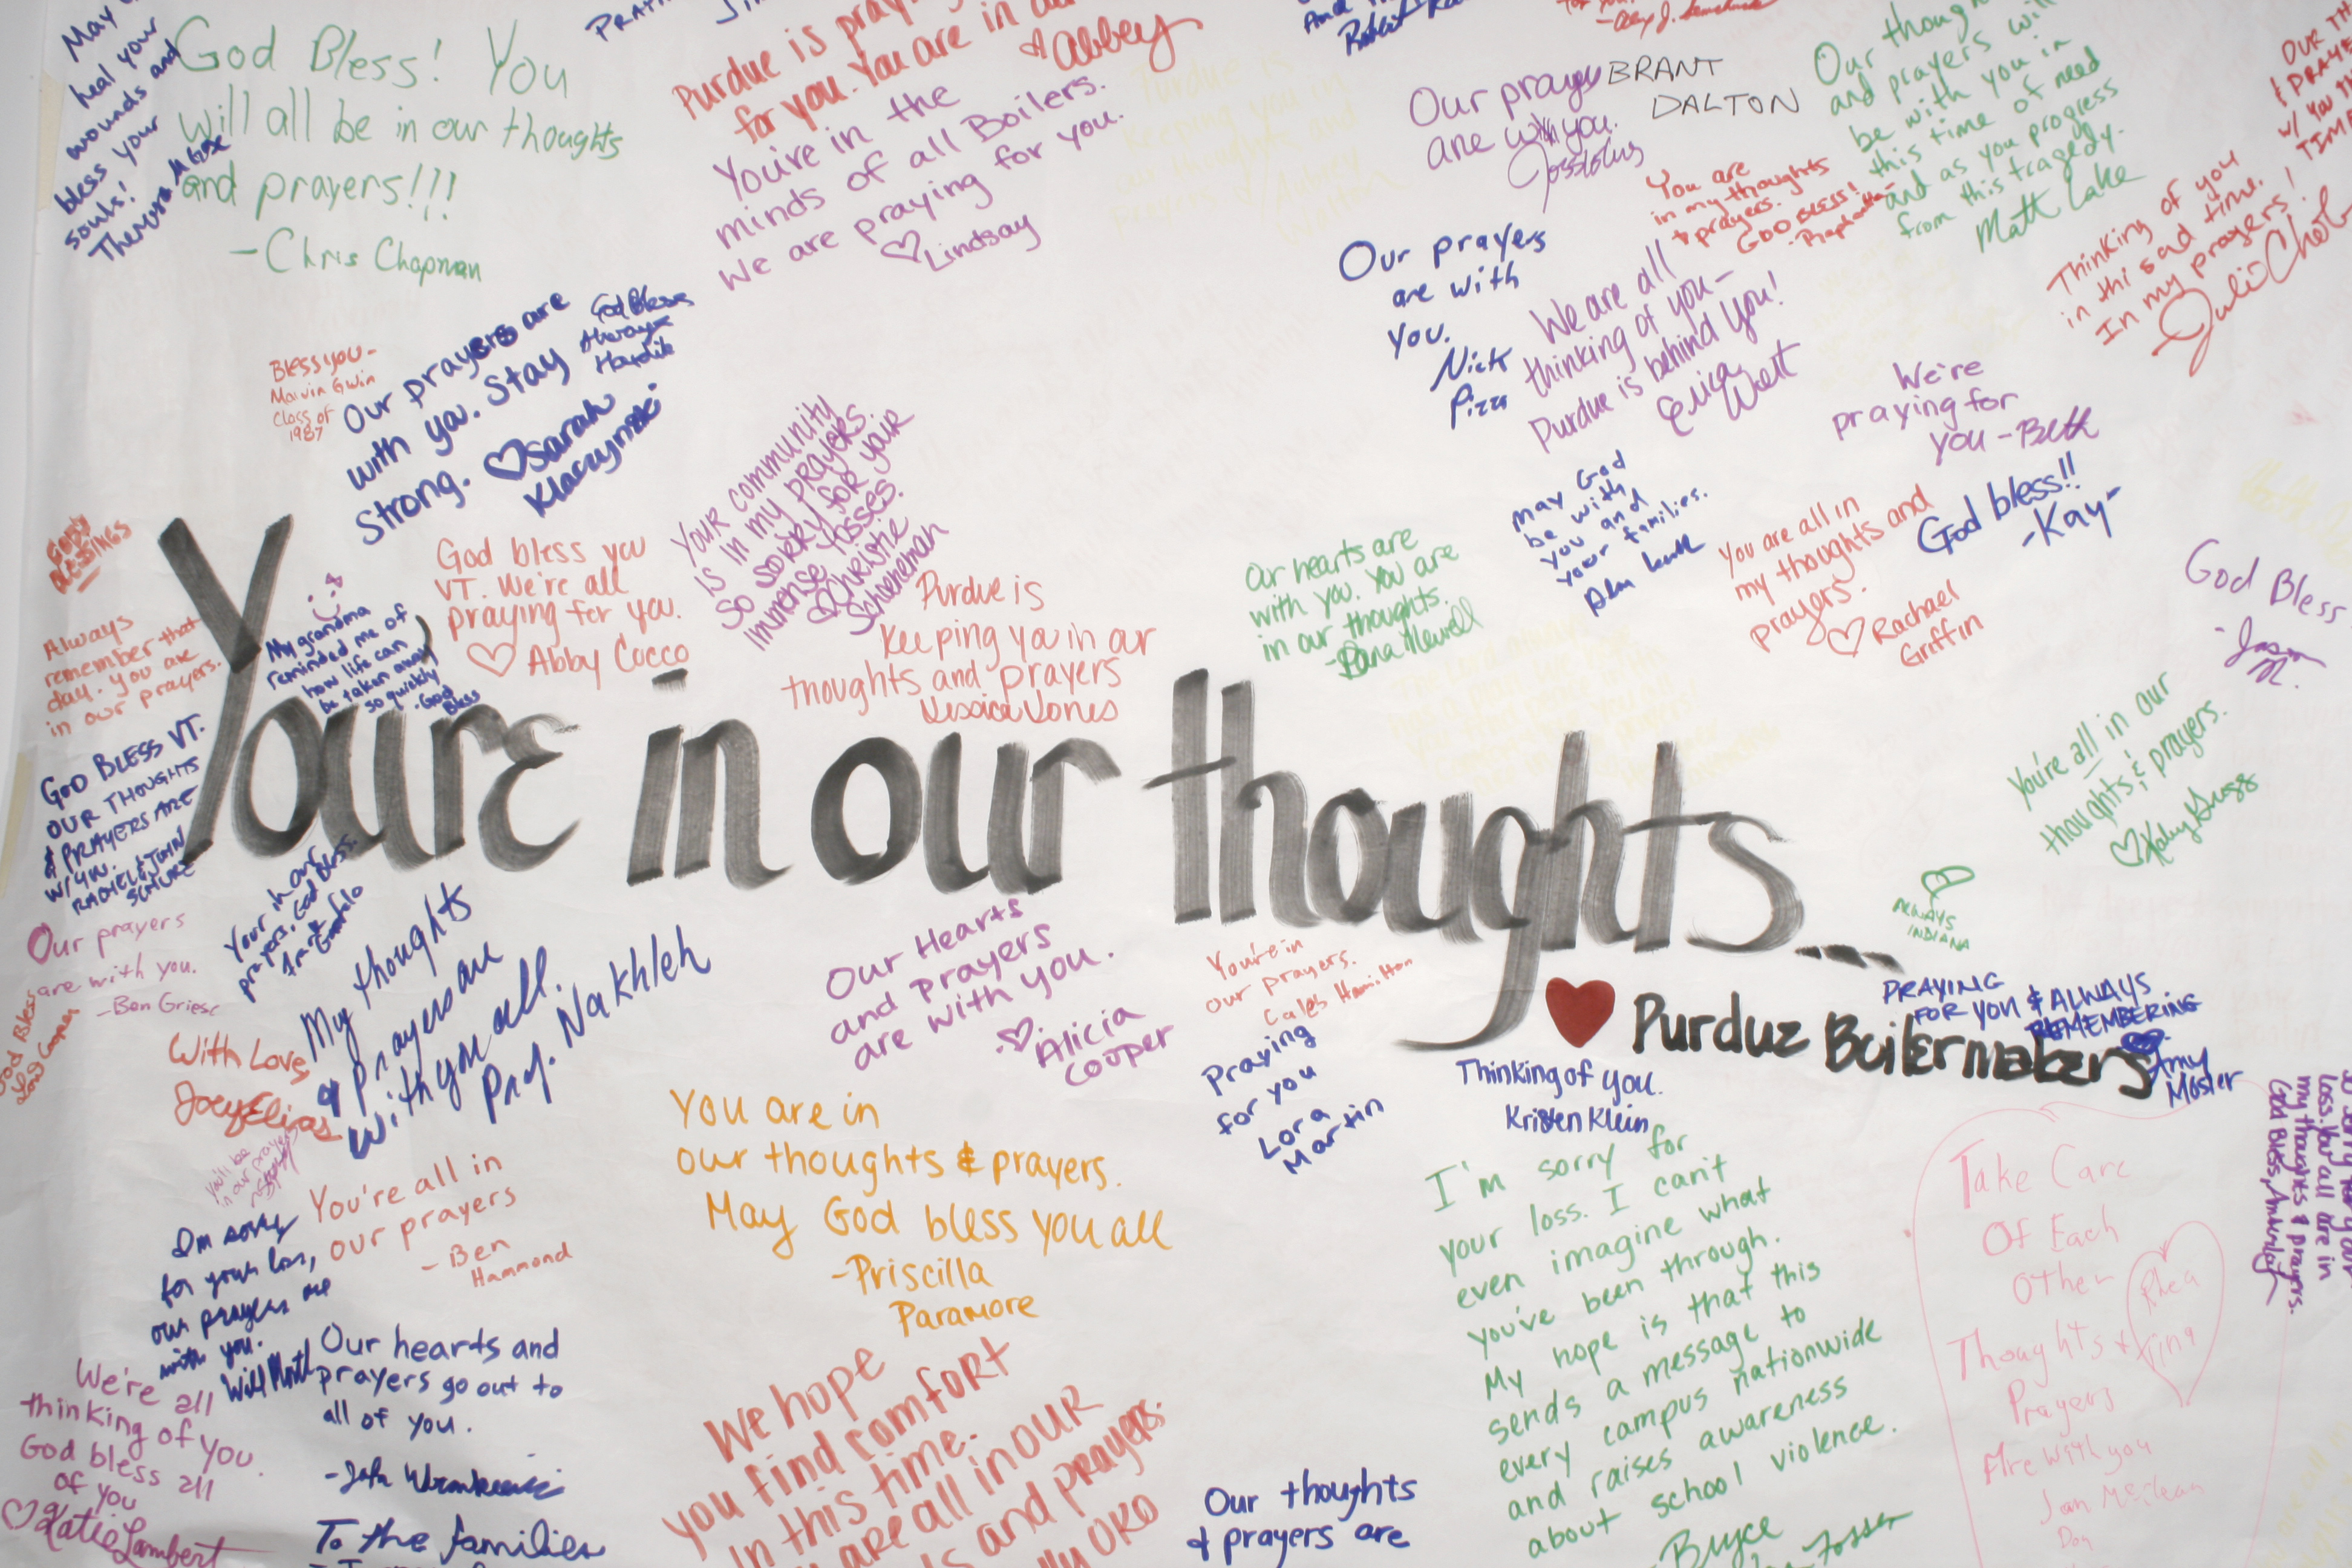 May
heal your
wounds and
bless your
souls!
God Bless! You
will all be in our thoughts
and prayers!!!
-Chris Chapman
Purdue is
for you. You are in
Abbey
You're in the
minds of all Boilers.
We are praying for you.
♡Lindsay
Purdue is
keeping you in
our thoughts and
prayers
Our prayers
are with you.
BRANT
DALTON
Our
and prayers will
be with you in
this time of need
and as you progress
from this tragedy.
Matt Lake
You are
in my thoughts
+ prayers.
GOD BLESS!
Thinking of you
in thi sad time.
In my prayers!
Our prayers
are with
you.
Nick
Pizza
We are all
thinking of you-
Purdue is behind You!
Erica
We're
praying for
you - Beth
Bless you-
Marvin Gwin
Class of
1987
Our prayers are
with you. Stay
Strong. ♡Sarah
God Bless
Always
Hardik
Your community
is in my prayers.
So sorry for your
immense losses.
♡Christie
Schueneman
God bless you
VT. We're all
praying for you.
♡ Abby Cocco
Purdue is
Keeping you in our
thoughts and prayers
Jessica Jones
Our hearts are
with you. You are
in our thoughts.
May God
be with
you and
your families.
You are all in
my thoughts and
prayers.
♡Rachael
Griffin
God bless!!
-Kay-
God Bless
My grandma
reminded me of
how life can
be taken away
so quickly
-God
Bless
Always
remember that
day. You are
in our prayers.
GOD BLESS VT.
OUR THOUGHTS
& PRAYERS ARE
W/ YOU.
You're in our thoughts...
♥ Purdue Boilermakers
You're all in our
thoughts & prayers.
ALWAYS
INDIANA
PRAYING
FOR YOU & ALWAYS
REMEMBERING
Amy
Mosier
Your in our
prayers, God Bless.
Our prayers
are with you.
-Ben Griese
God Bless
With Love,
Joey Elias
My thoughts
& prayers are
with you all.
Prof. Nakhleh
Our Hearts
and prayers
are with you.
-♡Alicia
Cooper
You're in
our prayers.
Caleb Hamilton
Praying
for you
Lora
Martin
Thinking of you.
Kristen Klein
You are in
our thoughts & prayers.
May God bless you all
-Priscilla
Paramore
You'll be
in our prayers
You're all in
our prayers
-Ben
Hammond
I'm sorry
for your loss,
our prayers are
with you.
Our hearts and
prayers go out to
all of you.
We're all
thinking of you.
God bless all
of you
♡Katie Lambert
To the families
We hope
you find comfort
in this time.
are all in our
and prayers.
Our thoughts
& prayers are
I'm sorry for
your loss. I can't
even imagine what
you've been through.
My hope is that this
sends a message to
every campus nationwide
and raises awareness
about school violence.
Bryce
Take Care
Of Each
Other
Thoughts +
Prayers
Are with you
loss. You all are in
my thoughts & prayers.
God Bless,